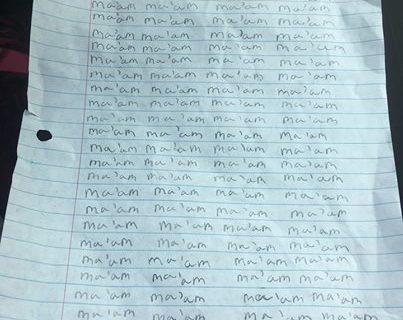 ma'am ma'am ma'am ma'am
ma'am ma'am ma'am ma'am
ma'am ma'am ma'am ma'am
ma'am ma'am ma'am ma'am
ma'am ma'am ma'am ma'am
ma'am ma'am ma'am ma'am
ma'am ma'am ma'am ma'am
ma'am ma'am ma'am ma'am
ma'am ma'am ma'am ma'am
ma'am ma'am ma'am ma'am
ma'am ma'am ma'am ma'am
ma'am ma'am ma'am ma'am
ma'am ma'am ma'am ma'am
ma'am ma'am ma'am ma'am
ma'am ma'am ma'am ma'am
ma'am ma'am ma'am ma'am
ma'am ma'am ma'am ma'am
ma'am ma'am ma'am ma'am
ma'am ma'am ma'am ma'am
ma'am ma'am ma'am ma'am
ma'am ma'am ma'am ma'am